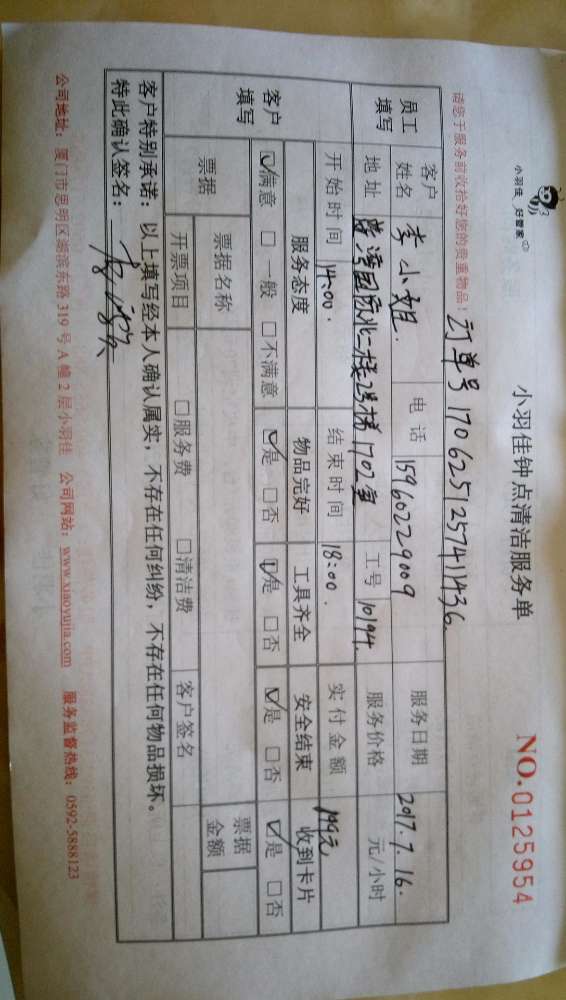 小羽佳 好管家
小羽佳钟点清洁服务单
NO.0125954
请您于服务前收拾好您的贵重物品！
订单号 1706251257411436.
员工填写
客户姓名 李小姐. 电话 15960229009 服务日期 2017.7.16.
地址 蓝湾国际北二栋2号梯1702室 工号 10194. 服务价格 元/小时
开始时间 14:00. 结束时间 18:00. 实付金额 199元
客户填写
服务态度 物品完好 工具齐全 安全结束 收到卡片
☑满意 □一般 □不满意 ☑是 □否 ☑是 □否 ☑是 □否 ☑是 □否
票据 票据名称 票据金额
开票项目 □服务费 □清洁费 客户签名
客户特别承诺：以上填写经本人确认属实，不存在任何纠纷，不存在任何物品损坏。
特此确认签名：
公司地址：厦门市思明区湖滨东路319号A幢2层小羽佳 公司网站：www.xiaoyujia.com 服务监督热线：0592-5888123